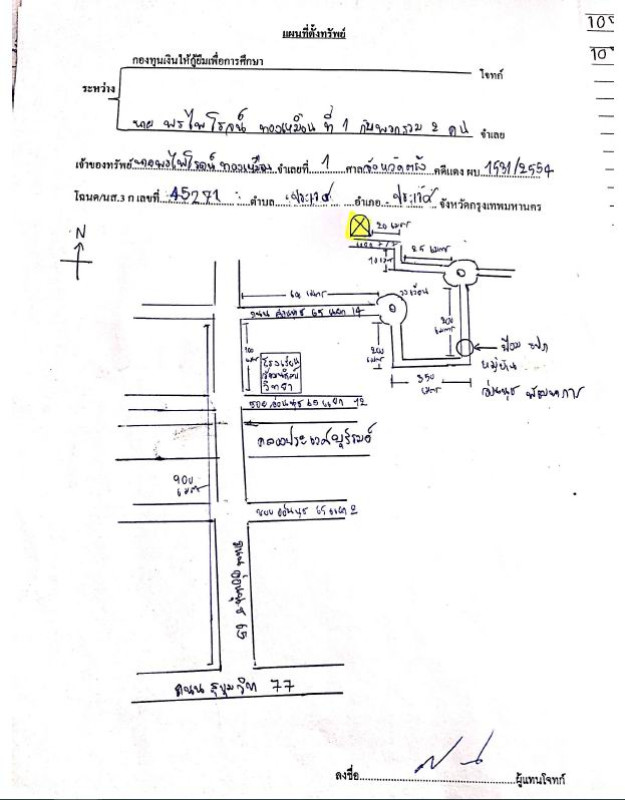 แผนที่ตั้งทรัพย์
กองทุนเงินให้กู้ยืมเพื่อการศึกษา
โจทก์
ระหว่าง
นาย พรไพโรจน์ ทองเหมือน ที่ 1 กับพวกรวม 2 คน จำเลย
เจ้าของทรัพย์ นายพรไพโรจน์ ทองเหมือน จำเลยที่ 1 ศาลจังหวัดตรัง คดีแดง ผบ 1531/2554
โฉนด/นส.3 ก เลขที่ 45271 ตำบล ประเวศ อำเภอ ประเวศ จังหวัดกรุงเทพมหานคร
N
20 เมตร
10 เมตร
25 เมตร
วงเวียน
200 เมตร
ป้อม รปภ
หมู่บ้าน
อ่อนนุช พัฒนาการ
350 เมตร
65 แยก 14
100 เมตร
200 เมตร
โรงเรียน
วิทยา
ซอย อ่อนนุช 65 แยก 12
คลองประเวศบุรีรมย์
900 เมตร
ซอย อ่อนนุช 65 แยก 2
ถนน อ่อนนุช 65
ถนน สุขุมวิท 77
ลงชื่อ ผู้แทนโจทก์